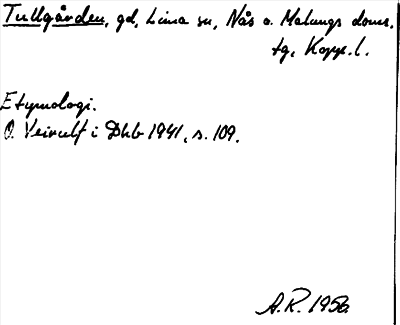 Tullgården, gd, Lima sn, Nås o. Malungs doms.
tg, Kopp. l.
Etymologi.
O. Veirulf i Dhb 1941, s. 109.
A.R. 1956.